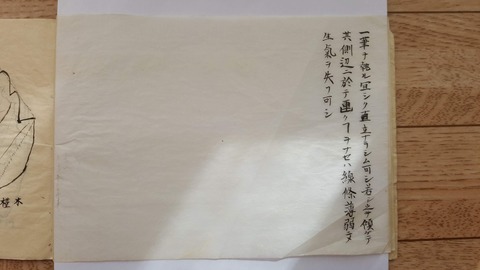 一筆ヲ起ル宜シク直立ナラシム可シ若シ之ヲ傾ケテ
其側辺ニ於テ画クヿヲナセハ線條薄弱ニテ
生氣ヲ失フ可シ
木槿